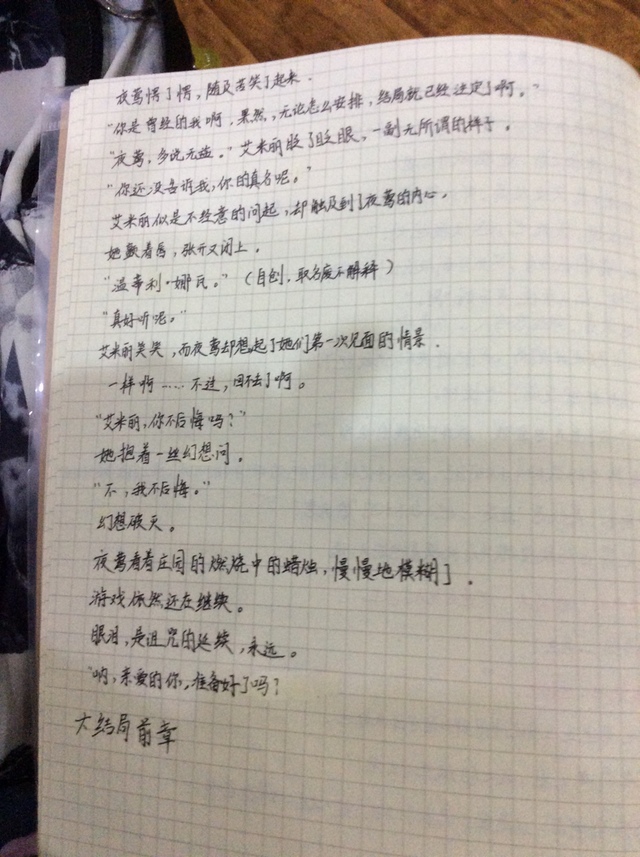 夜莺愣了愣，随及苦笑了起来．
“你是曾经的我啊，果然，无论怎么安排，结局就已经注定了啊。”
“夜莺，多说无益。”艾米丽眨了眨眼，一副无所谓的样子。
“你还没告诉我，你的真名呢。”
艾米丽似是不经意的问起，却触及到了夜莺的内心。
她颤着唇，张开又闭上。
“温蒂利·娜瓦。”（自创，取名废不解释）
“真好听呢。”
艾米丽笑笑，而夜莺却想起了她们第一次见面的情景．
一样啊……不过，回不去了啊。
“艾米丽，你不后悔吗？”
她抱着一丝幻想问。
“不，我不后悔。”
幻想破灭。
夜莺看着庄园的燃烧中的蜡烛，慢慢地模糊了．
游戏依然还在继续。
眼泪，是诅咒的延续，永远。
“呐，亲爱的你，准备好了吗？
大结局前章